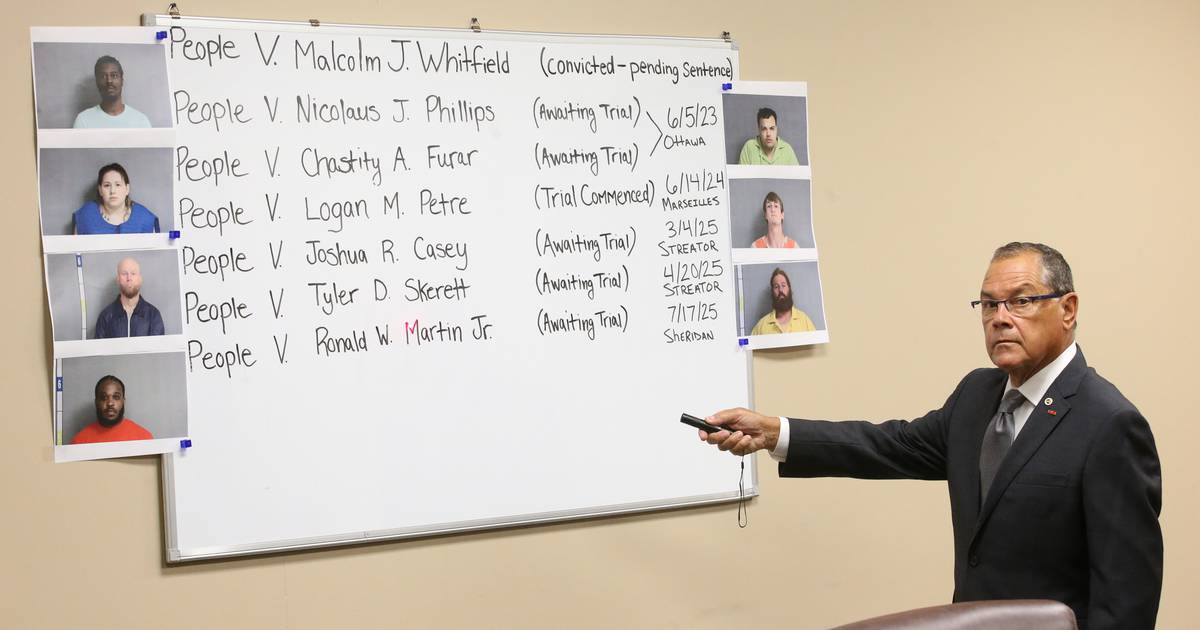 People V. Malcolm J. Whitfield (convicted - pending Sentence)
People V. Nicolaus J. Phillips (Awaiting Trial) 6/5/23
OTTAWA
People V. Chastity A. Furar (Awaiting Trial)
People V. Logan M. Petre (Trial Commenced) 6/14/24
MARSEILLES
People V. Joshua R. Casey (Awaiting Trial) 3/4/25
STREATOR
People V. Tyler D. Skerett (Awaiting Trial) 4/20/25
STREATOR
People V. Ronald W. Martin Jr. (Awaiting Trial) 7/17/25
SHERIDAN